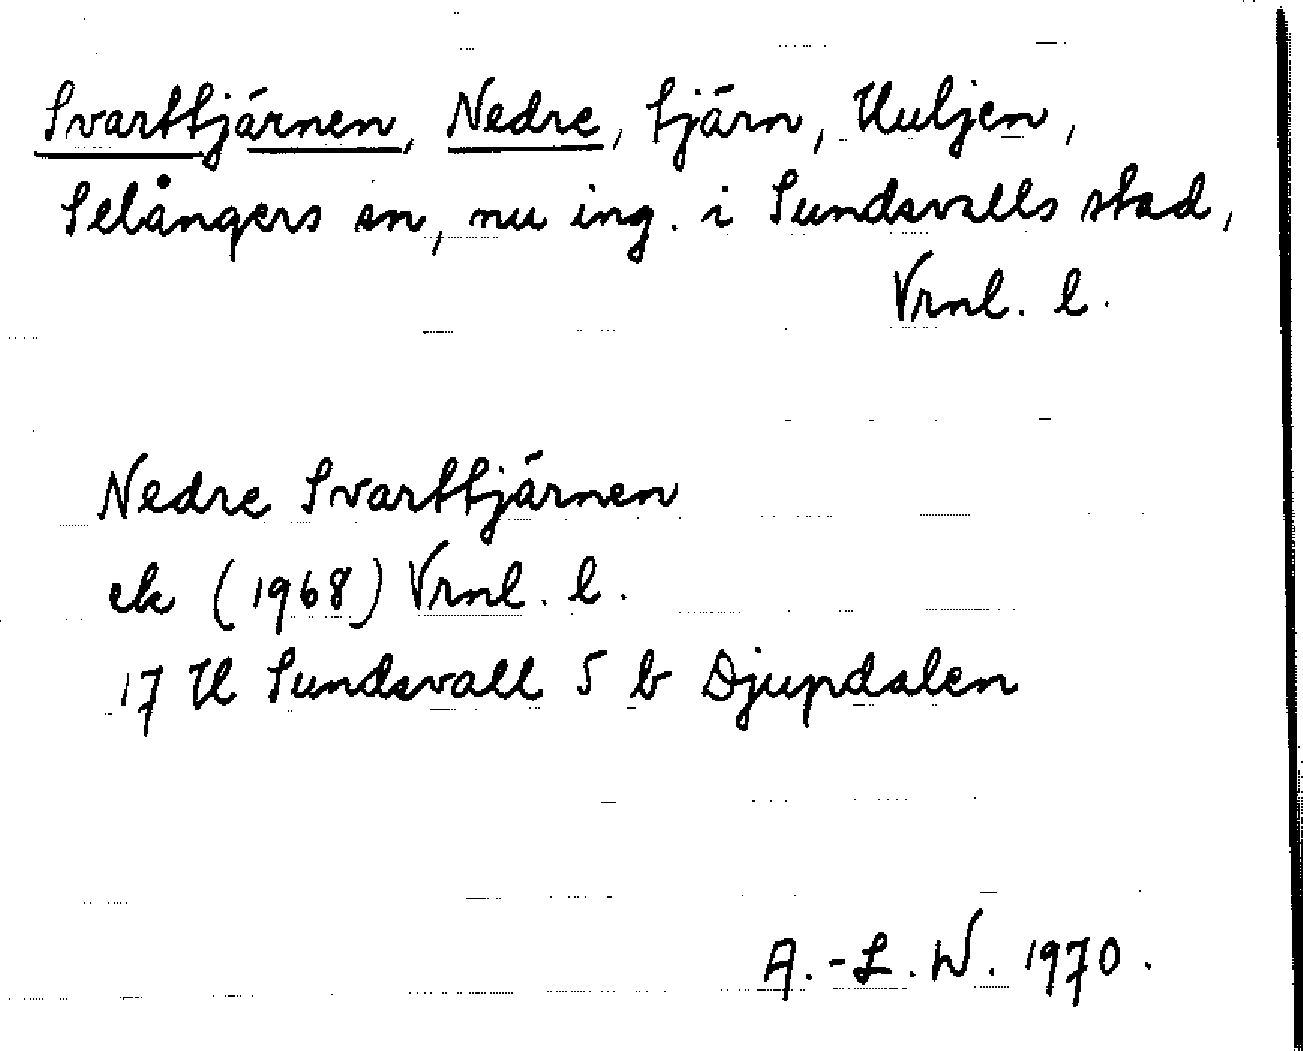 Svarttjärnen, Nedre, tjärn, Huljen,
Selångers sn, nu ing. i Sundsvalls stad,
Vrnl. l.
Nedre Svarttjärnen
ek (1968) Vrnl. l.
17 H Sundsvall 5 b Djupdalen
A.-L. W. 1970.